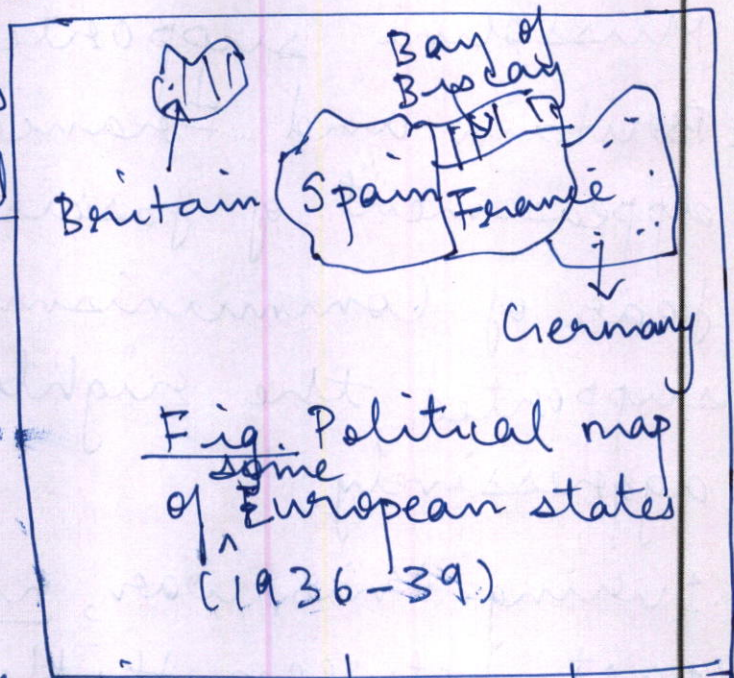 Bay of
Biscay
Britain
Spain
France
Germany
Fig. Political map
of some European states
(1936-39)